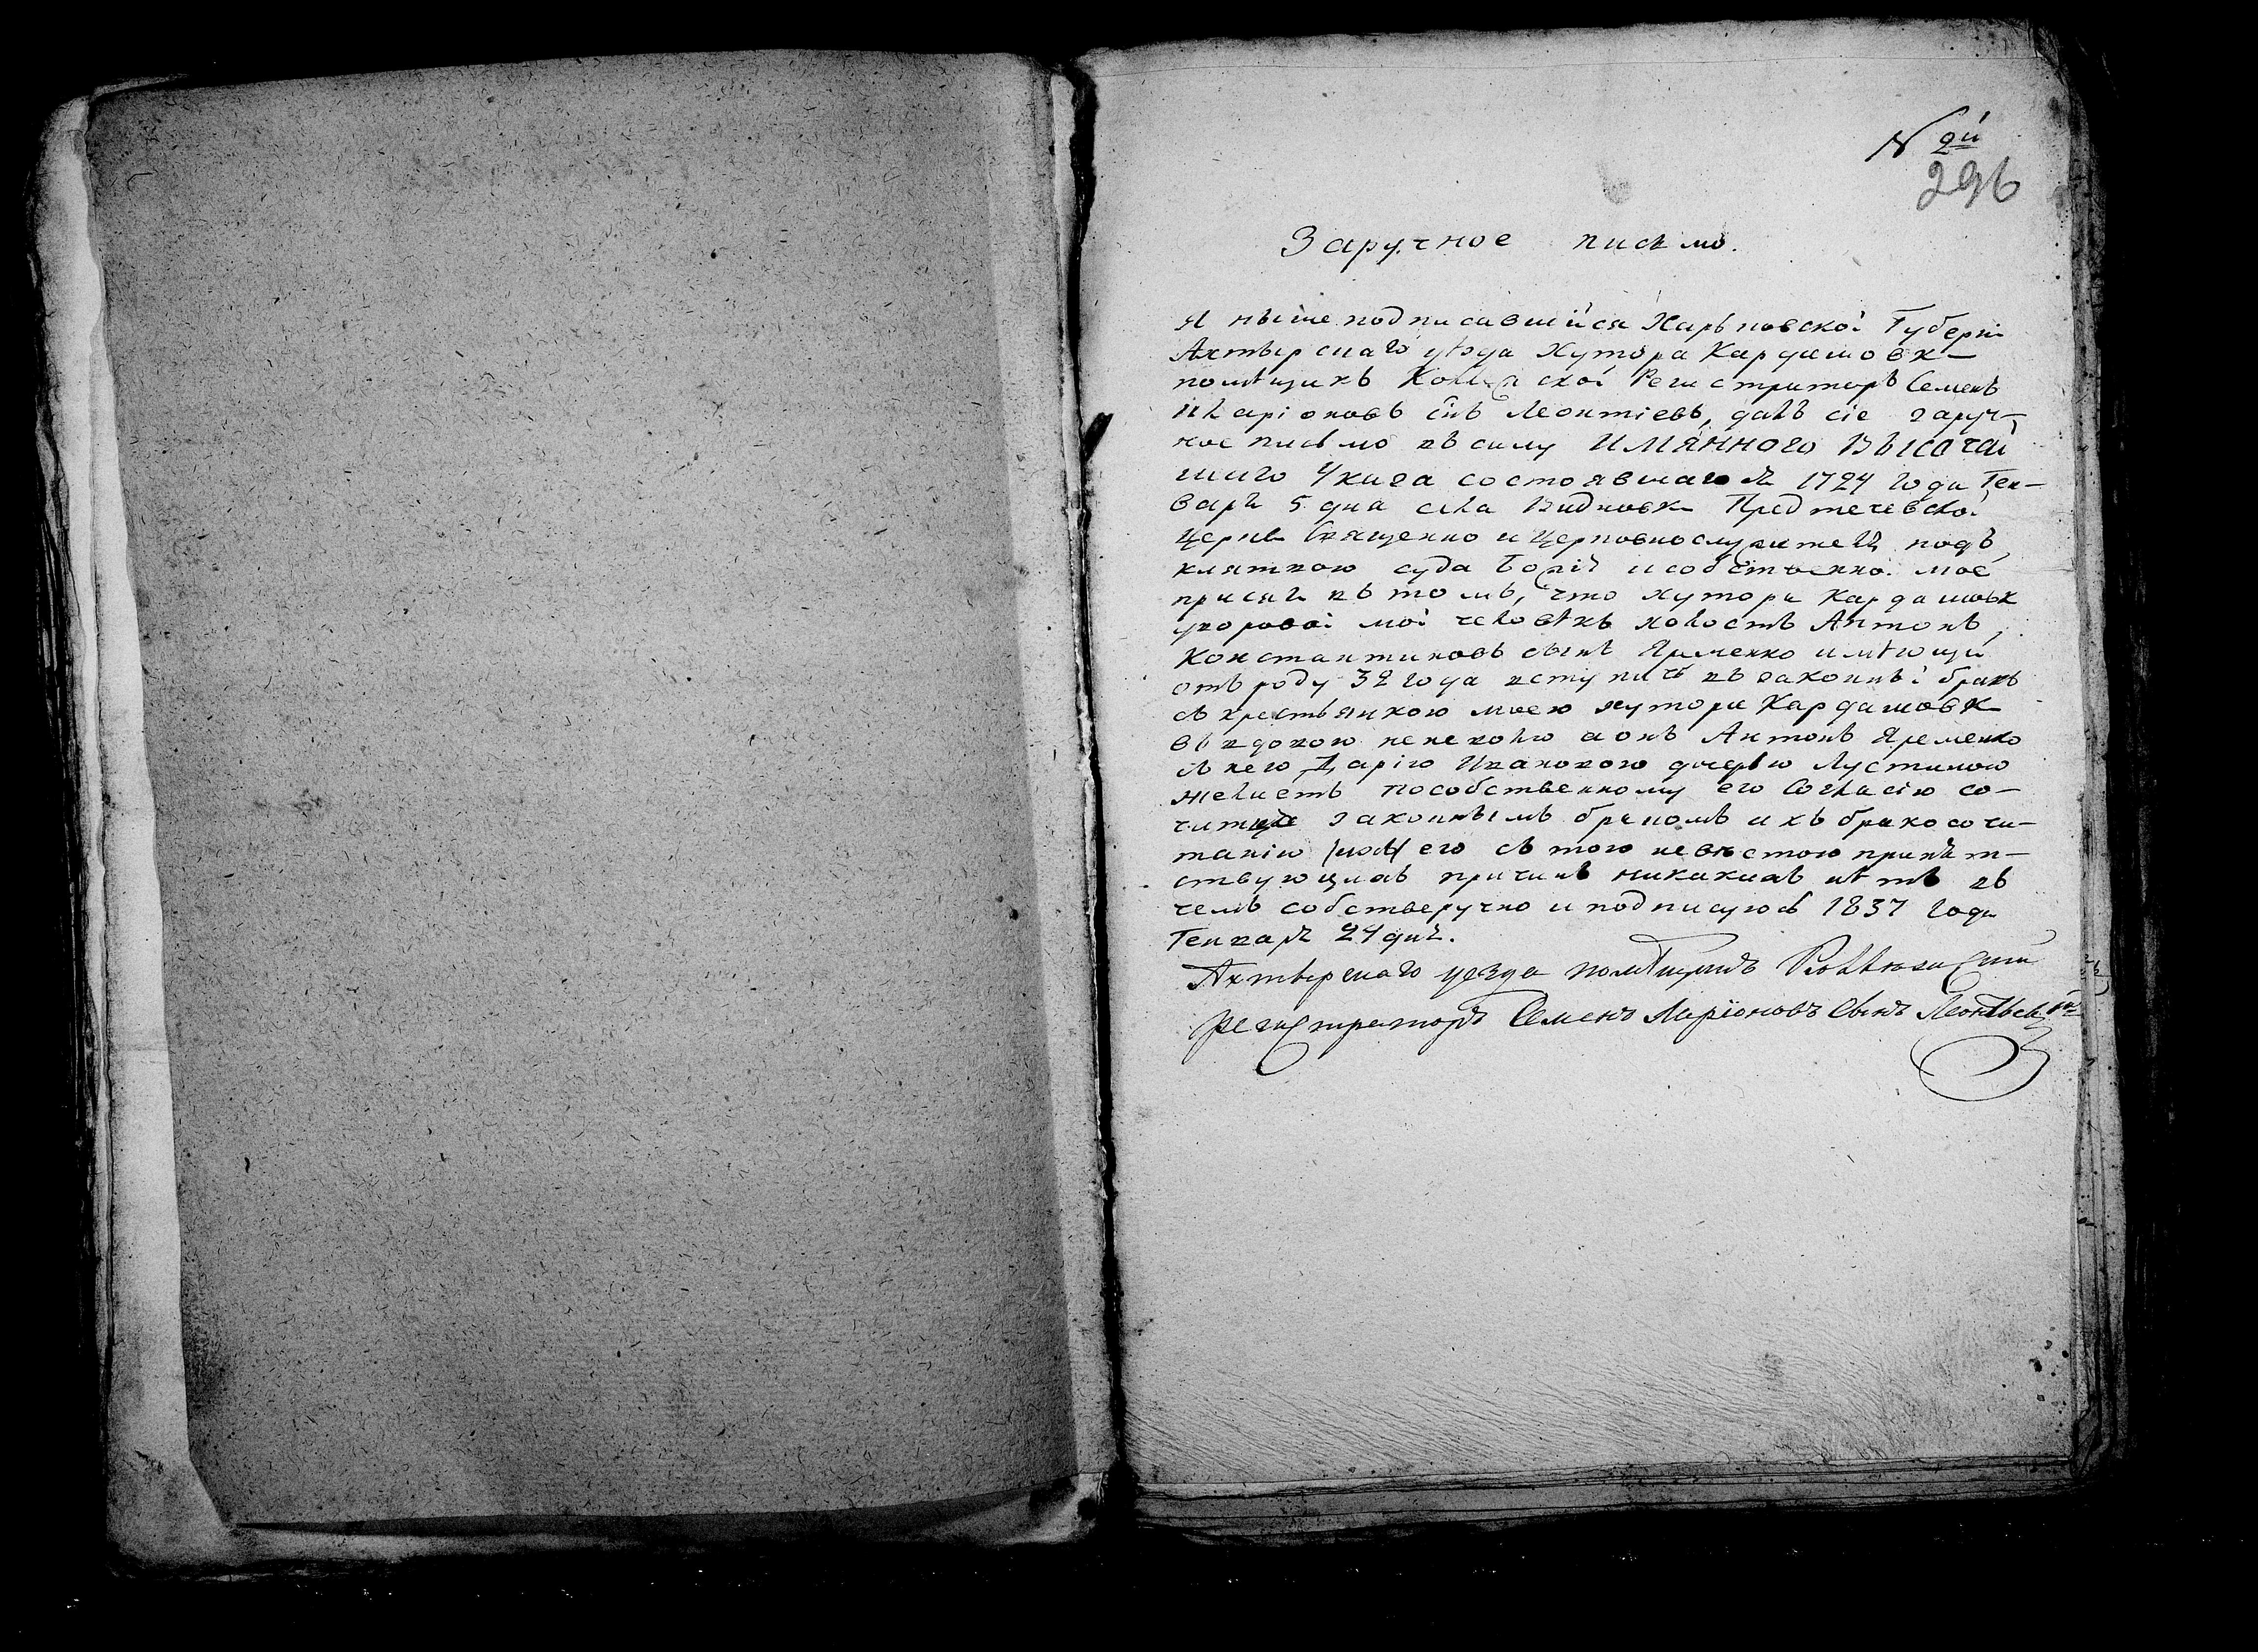 N 2й
296
Заручное письмо.
Я ниже подписавшийся Харьковской Губерни
Ахтырскаго уѣзда Хутора Кардашовк—
помѣщикъ Регистраторъ Семенъ
Иларіоновъ Леонтіевъ, далъ сіе заруч—
ное письмо въ силу ИМЯННОГО ВЫСОЧАй
шаго Указа состоявшагося 1724 года Ген—
варя 5 дня села Предтечевской
Церкви Священно и Церковнослужителей подъ
клятвою суда Божія и собственно моей
присяги въ томъ, что хутора Кардашовк
дворовой мой человѣкъ холостъ Антонъ
Константиновъ сынъ Яременко имѣющи
отъ роду 32 года вступить въ законный бракъ
съ крестьянкою моею хутора Кардашовк
а онъ Антонъ Яременко
съ нею Дарію Ивановою дочерью
желаетъ пособственному его Согласію со—
законнымъ бракомъ и къ бракосочи—
танію его съ тою невѣстою препят—
ствующихъ причинъ никакихъ нѣтъ въ
чемъ собстверучно и подписуюсь 1837 года
Генваря 24 дня.
Ахтырскаго уезда помѣщикъ
регистраторъ Семенъ Ларіоновъ Сынъ